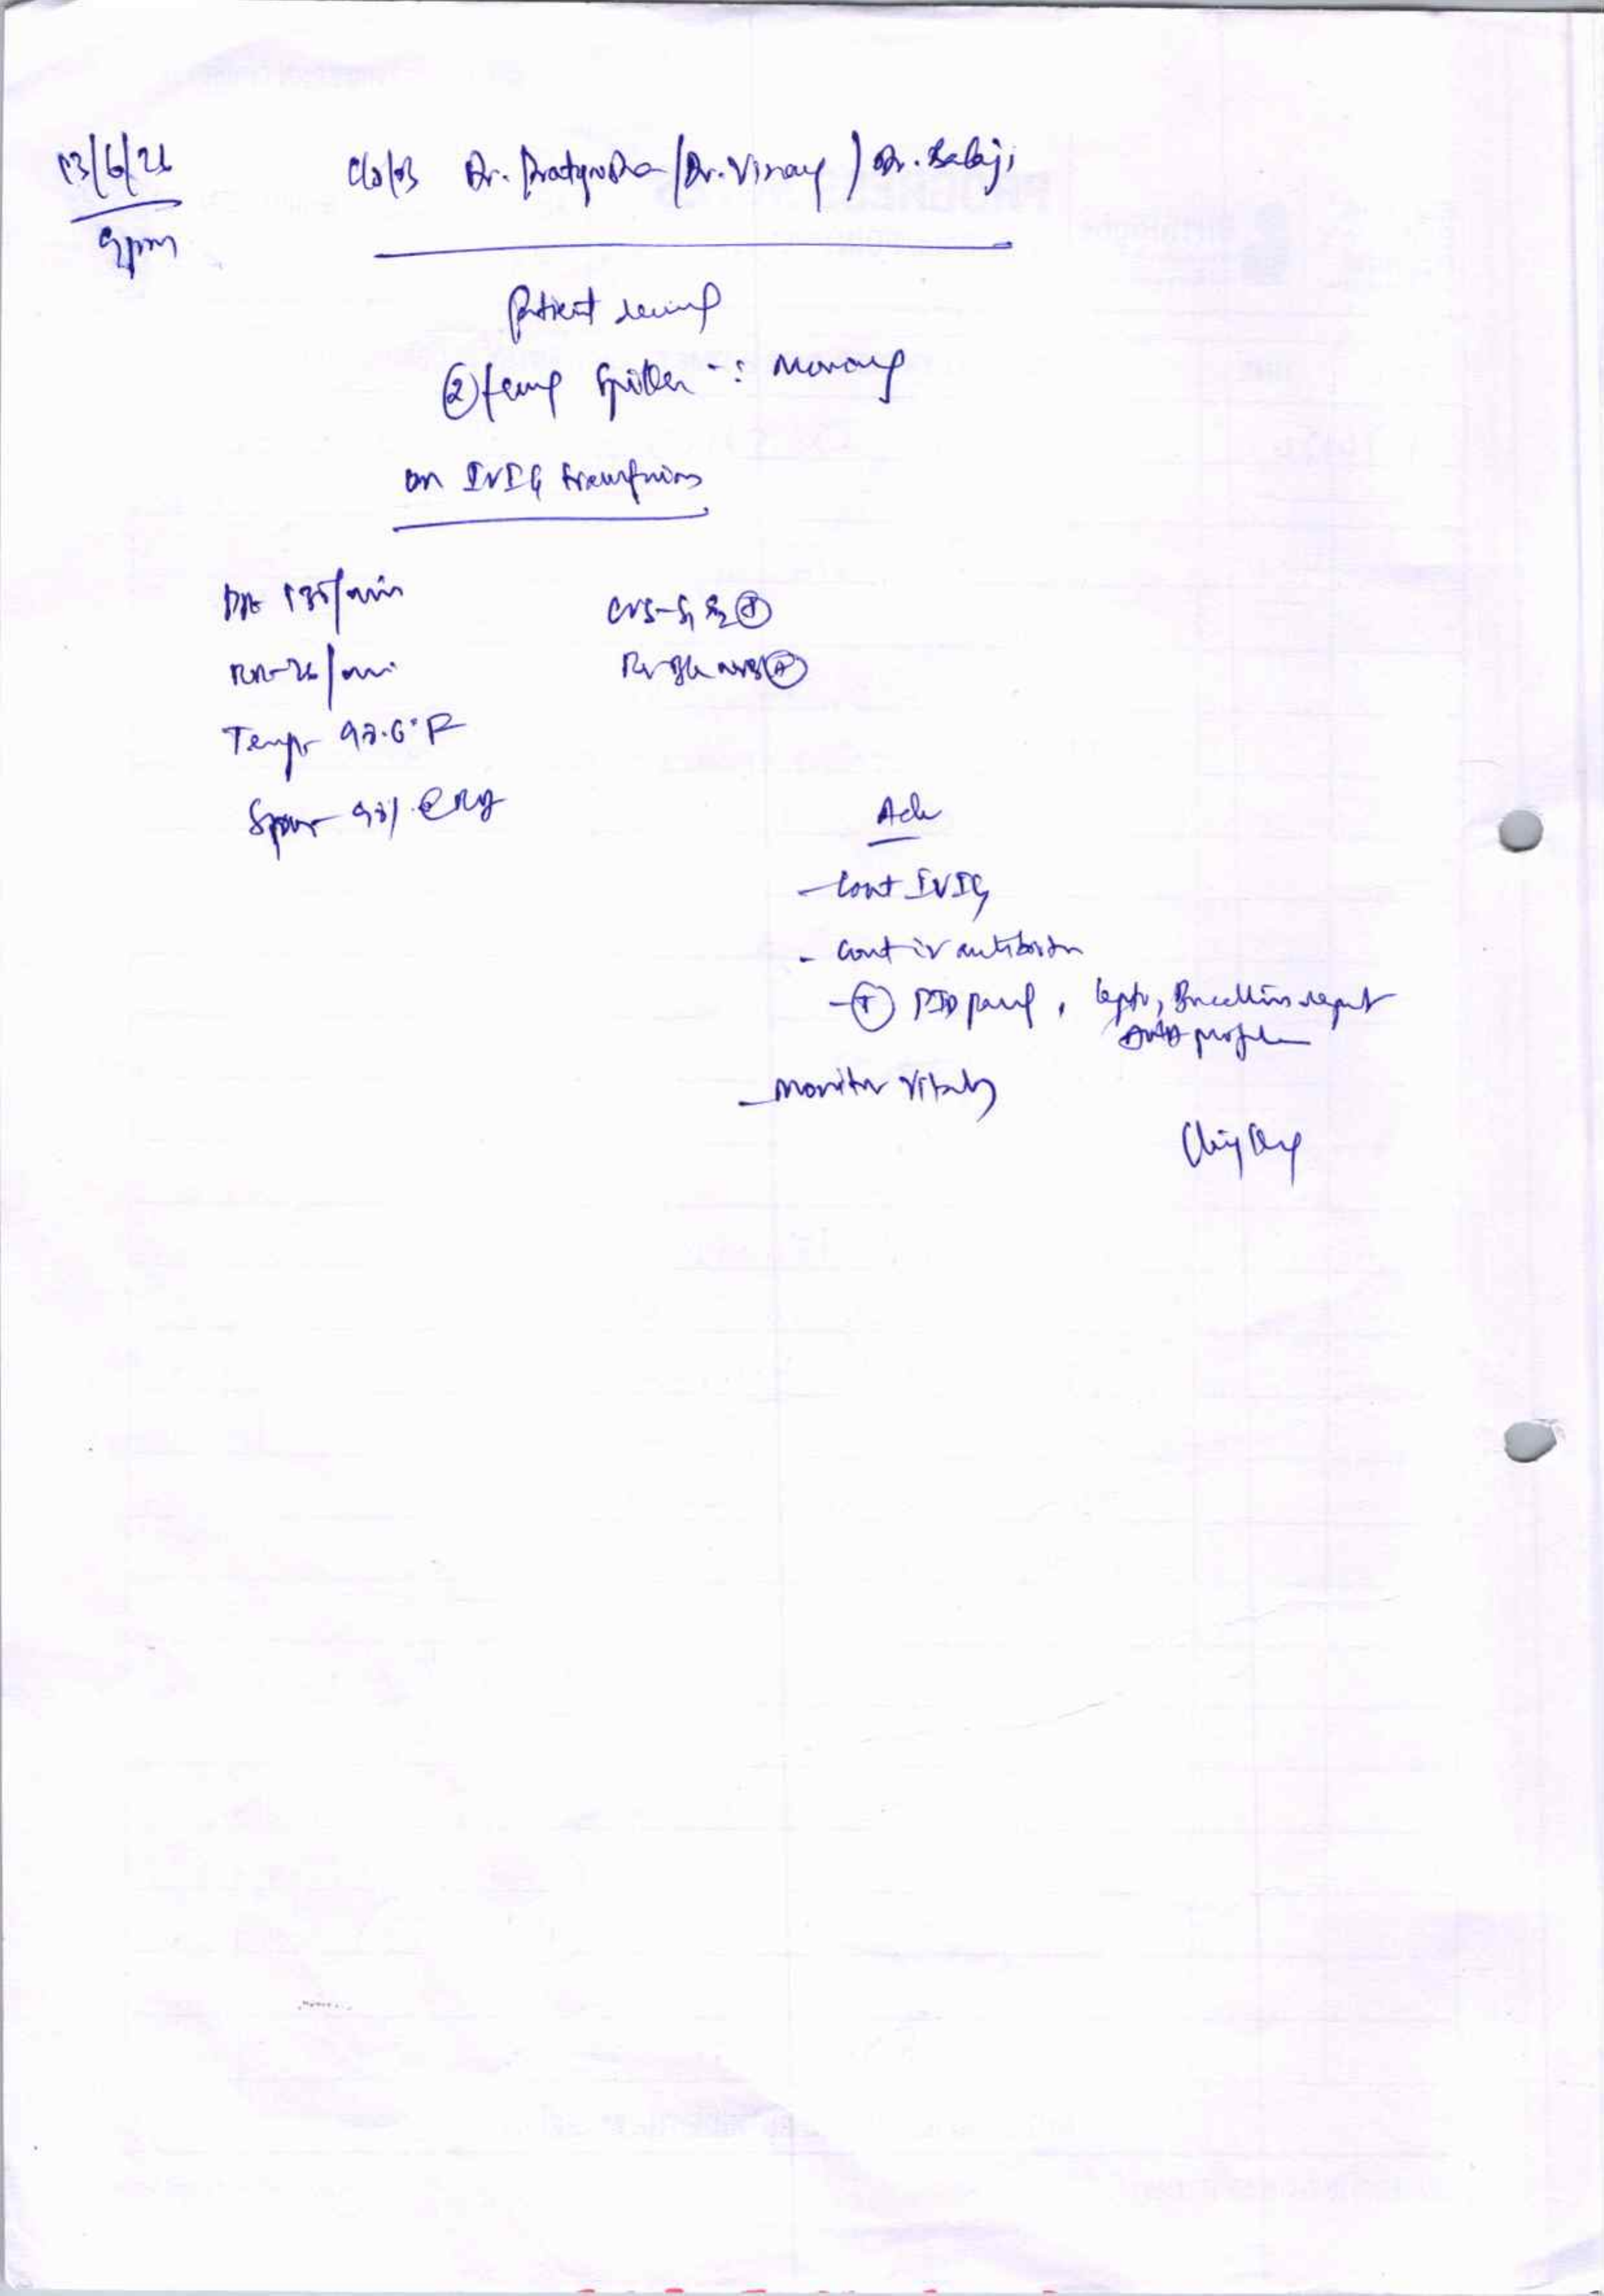 13/6/26
9pm
C/S/B Dr. Pratyusha / Dr. Vinay / Dr. Balaji
Patient
② temp ∵ Morning
on IVIG transfusion
135/min
RR-26/min
Temp- 98.6°F
98%
CVS-S1 S2 ⊕
Adv
- Cont IVIG
- Cont iv antibiotin
- Ⓣ PID panel, lepto, Brucella report
profile
- Monitor vitals